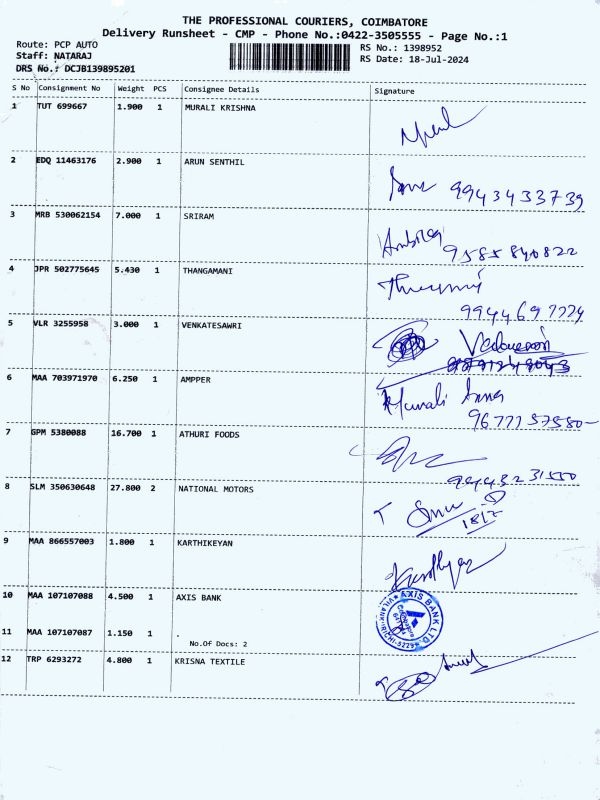 THE PROFESSIONAL COURIERS, COIMBATORE
Delivery Runsheet - CMP - Phone No.:0422-3505555 - Page No.:1
Route: PCP AUTO RS No.: 1398952
Staff: NATARAJ RS Date: 18-Jul-2024
DRS No.: DCJB139895201
S No Consignment No Weight PCS Consignee Details Signature
1 TUT 699667 1.900 1 MURALI KRISHNA
2 EDQ 11463176 2.900 1 ARUN SENTHIL
9943433739
3 MRB 530062154 7.000 1 SRIRAM
9585840822
4 JPR 502775645 5.430 1 THANGAMANI
5 VLR 3255958 3.000 1 VENKATESAWRI
6 MAA 703971970 6.250 1 AMPPER
7 GPM 5380088 16.700 1 ATHURI FOODS
8 SLM 350630648 27.800 2 NATIONAL MOTORS
18/7
9 MAA 866557003 1.800 1 KARTHIKEYAN
10 MAA 107107088 4.500 1 AXIS BANK
AXIS BANK LTD.
11 MAA 107107087 1.150 1 .
No.Of Docs: 2
12 TRP 6293272 4.800 1 KRISNA TEXTILE